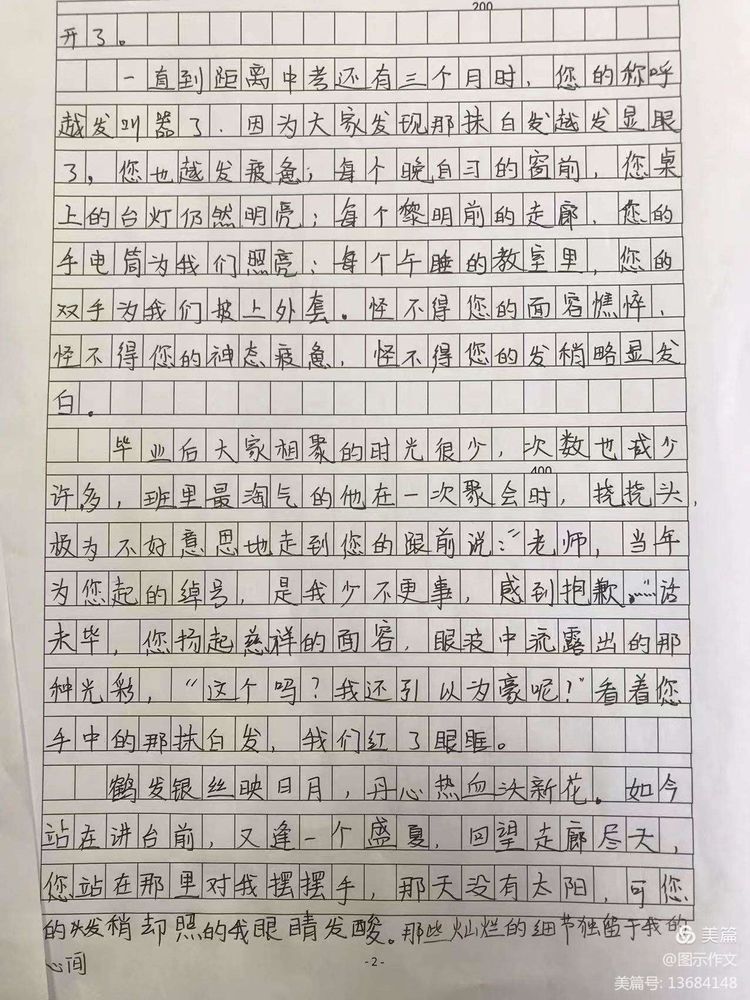 200
开了。
一直到距离中考还有三个月时，您的称呼
越发叫嚣了，因为大家发现那抹白发越发显眼
了。您也越发疲惫；每个晚自习的窗前，您桌
上的台灯仍然明亮；每个黎明前的走廊，您的
手电筒为我们照亮；每个午睡的教室里，您的
双手为我们披上外套。怪不得您的面容憔悴，
怪不得您的神态疲惫，怪不得您的发稍略显发
白。
毕业后大家相聚的时光很少，次数也减少
400
许多，班里最淘气的他在一次聚会时，挠挠头，
极为不好意思地走到您的跟前说：“老师，当年
为您起的绰号，是我少不更事，感到抱歉……”话
未毕，您扬起慈祥的面容，眼波中流露出的那
种光彩，“这个吗？我还引以为豪呢？”看着您
手中的那抹白发，我们红了眼眶。
鹤发银丝映日月，丹心热血沃新花。如今
站在讲台前，又逢一个盛夏，回望走廊尽头，
您站在那里对我摆摆手，那天没有太阳，可您
的头发稍却照的我眼睛发酸。那些灿烂的细节独留于我的
心间
-2-
美篇
@图示作文
美篇号: 13684148